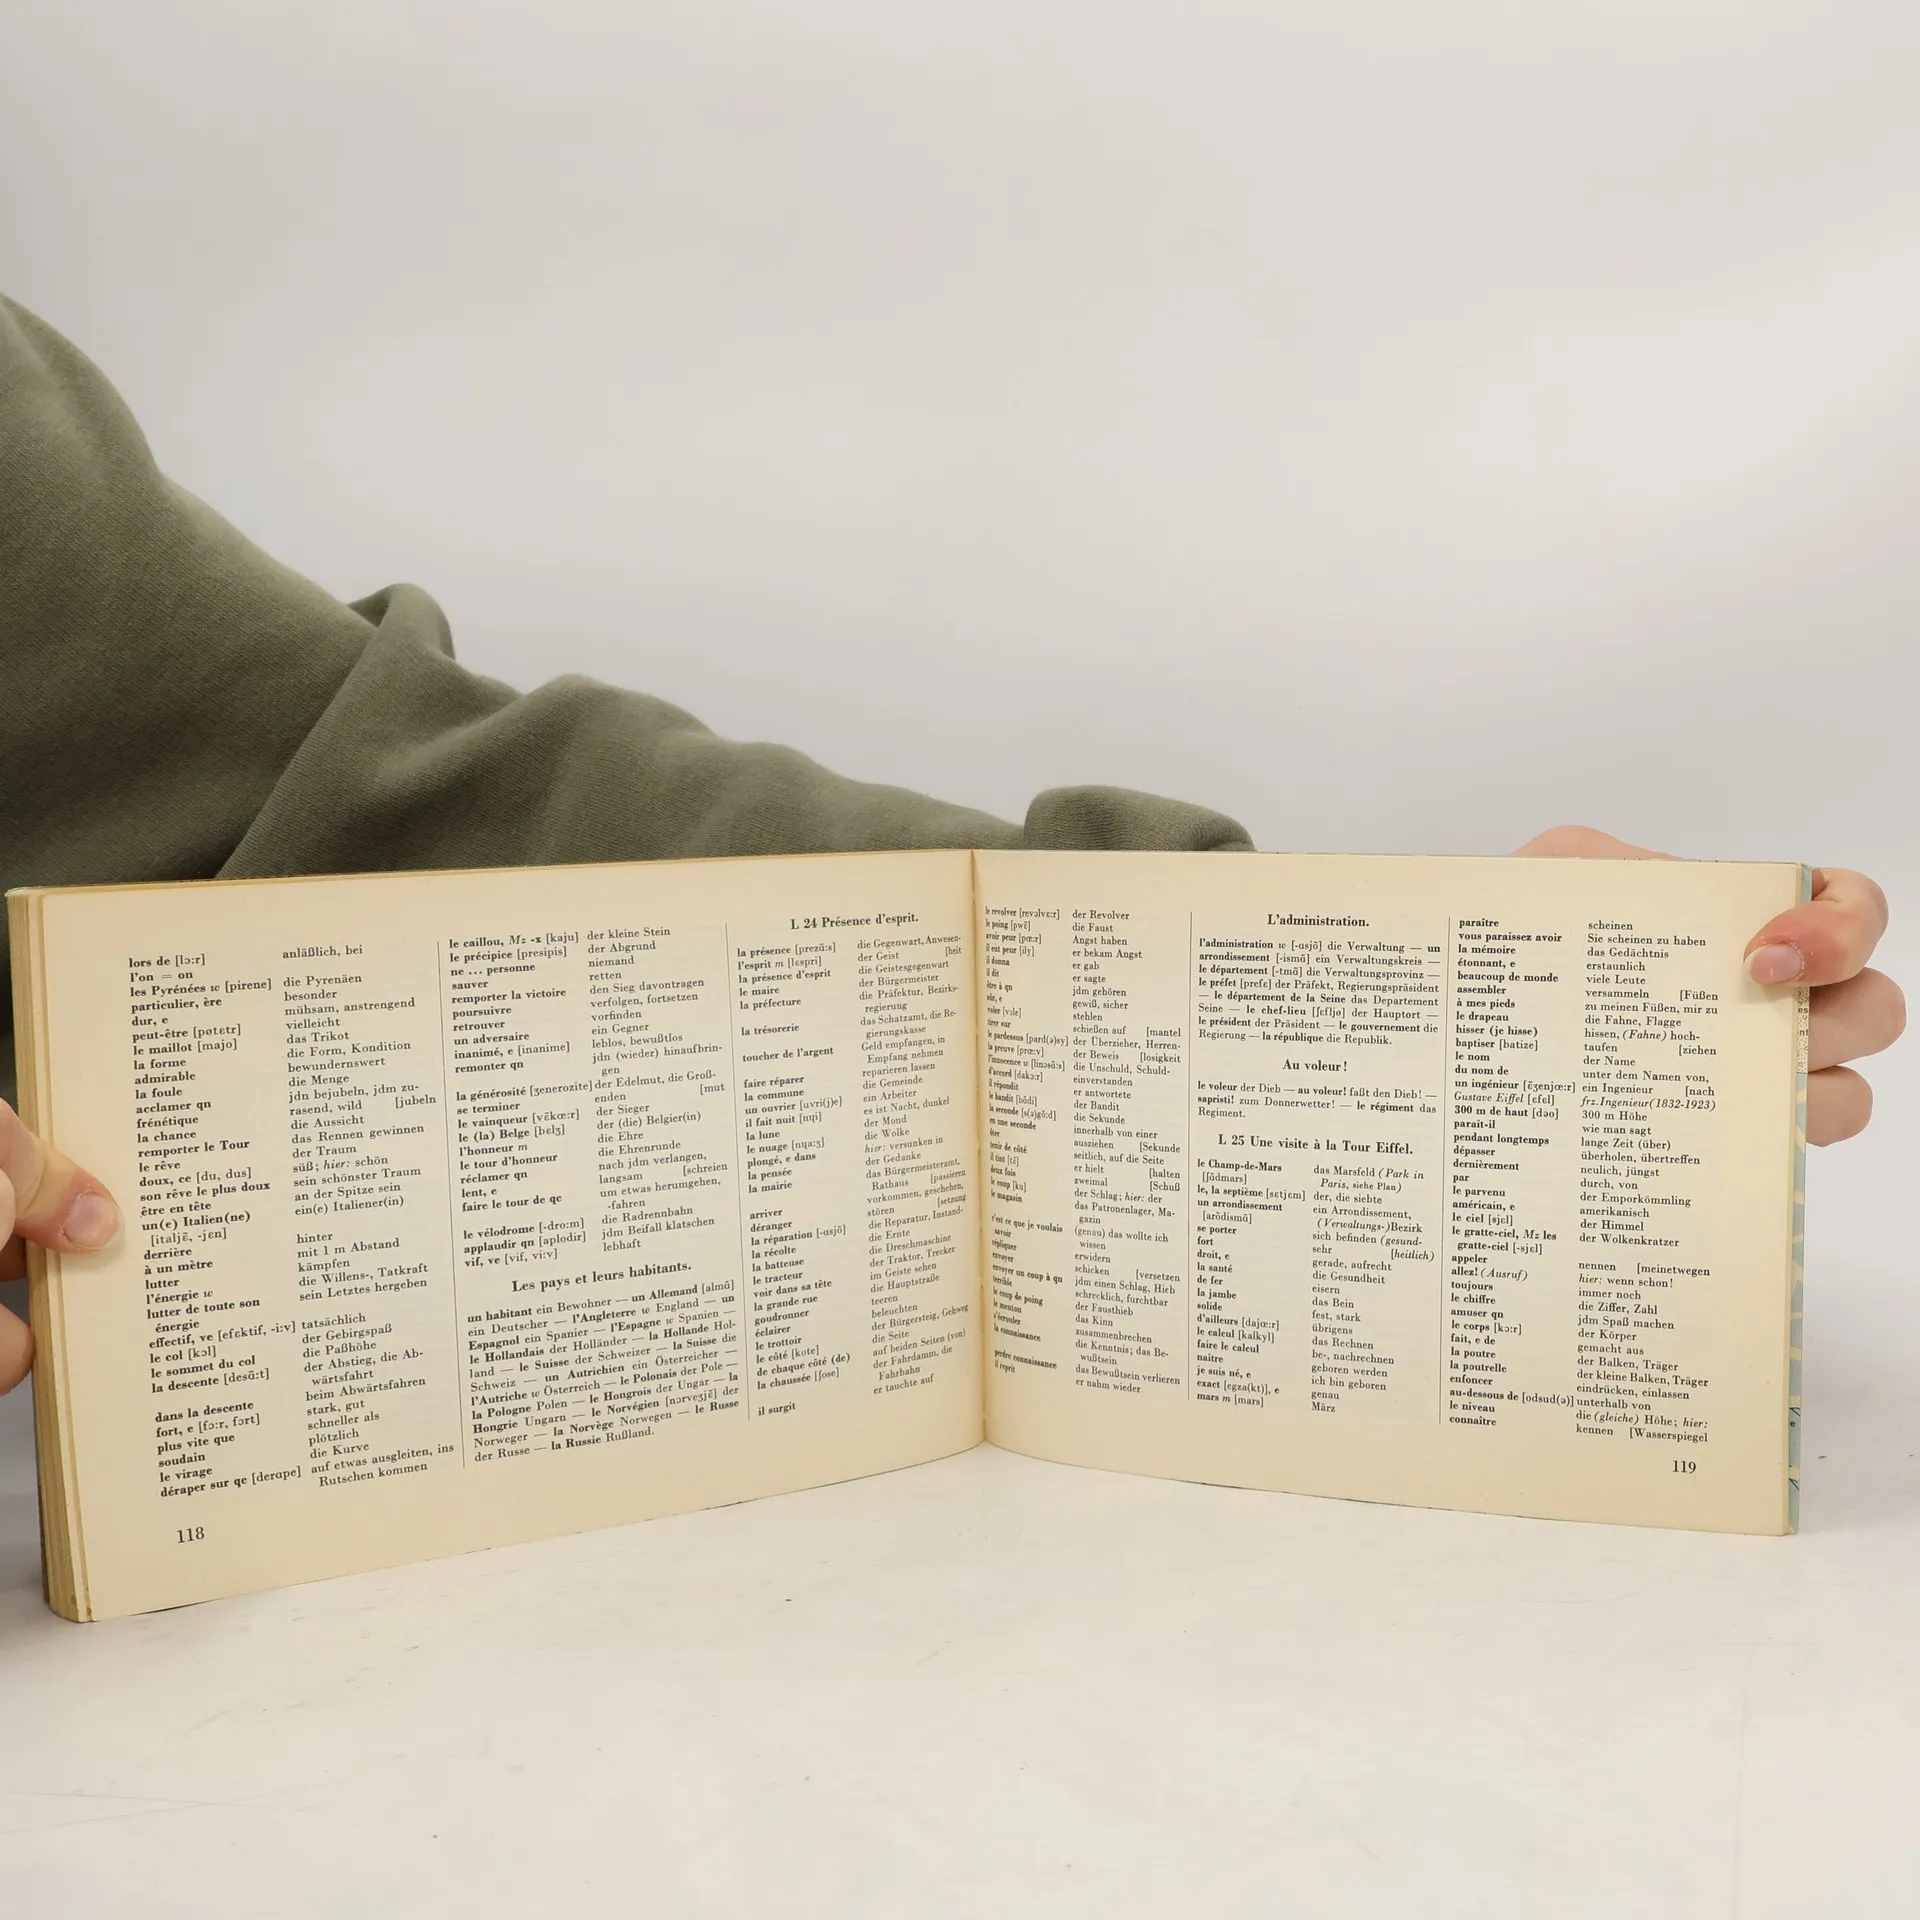 lors de [lɔ:r] anläßlich, bei
l'on = on
les Pyrénées w [pirene] die Pyrenäen
particulier, ère besonder
dur, e mühsam, anstrengend
peut-être [pøtɛtr] vielleicht
le maillot [majo] das Trikot
la forme die Form, Kondition
admirable bewundernswert
la foule die Menge
acclamer qn jdn bejubeln, jdm zu-
frénétique rasend, wild [jubeln
la chance die Aussicht
remporter le Tour das Rennen gewinnen
le rêve der Traum
doux, ce [du, dus] süß; hier: schön
son rêve le plus doux sein schönster Traum
être en tête an der Spitze sein
un(e) Italien(ne) ein(e) Italiener(in)
[italjɛ̃, -jɛn]
derrière hinter
à un mètre mit 1 m Abstand
lutter kämpfen
l'énergie w die Willens-, Tatkraft
lutter de toute son sein Letztes hergeben
énergie
effectif, ve [efɛktif, -i:v] tatsächlich
le col [kɔl] der Gebirgspaß
le sommet du col die Paßhöhe
la descente [desɑ̃:t] der Abstieg, die Ab-
wärtsfahrt
dans la descente beim Abwärtsfahren
fort, e [fɔ:r, fɔrt] stark, gut
plus vite que schneller als
soudain plötzlich
le virage die Kurve
déraper sur qc [derape] auf etwas ausgleiten, ins
Rutschen kommen
118
le caillou, Mz -x [kaju] der kleine Stein
le précipice [presipis] der Abgrund
ne ... personne niemand
sauver retten
remporter la victoire den Sieg davontragen
poursuivre verfolgen, fortsetzen
retrouver vorfinden
un adversaire ein Gegner
inanimé, e [inanime] leblos, bewußtlos
remonter qn jdn (wieder) hinaufbrin-
gen
la générosité [ʒenerozite] der Edelmut, die Groß-
se terminer enden [mut
le vainqueur [vɛ̃kœ:r] der Sieger
le (la) Belge [bɛlʒ] der (die) Belgier(in)
l'honneur m die Ehre
le tour d'honneur die Ehrenrunde
réclamer qn nach jdm verlangen,
lent, e langsam [schreien
faire le tour de qc um etwas herumgehen,
-fahren
le vélodrome [-dro:m] die Radrennbahn
applaudir qn [aplodir] jdm Beifall klatschen
vif, ve [vif, vi:v] lebhaft
Les pays et leurs habitants.
un habitant ein Bewohner — un Allemand [almɑ̃]
ein Deutscher — l'Angleterre w England — un
Espagnol ein Spanier — l'Espagne w Spanien —
le Hollandais der Holländer — la Hollande Hol-
land — le Suisse der Schweizer — la Suisse die
Schweiz — un Autrichien ein Österreicher —
l'Autriche w Österreich — le Polonais der Pole —
la Pologne Polen — le Hongrois der Ungar — la
Hongrie Ungarn — le Norvégien [nɔrveʒjɛ̃] der
Norweger — la Norvège Norwegen — le Russe
der Russe — la Russie Rußland.
L 24 Présence d'esprit.
la présence [prezɑ̃:s] die Gegenwart, Anwesen-
l'esprit m [lɛspri] der Geist [heit
la présence d'esprit die Geistesgegenwart
le maire der Bürgermeister
la préfecture die Präfektur, Bezirks-
regierung
la trésorerie das Schatzamt, die Re-
gierungskasse
toucher de l'argent Geld empfangen, in
Empfang nehmen
faire réparer reparieren lassen
la commune die Gemeinde
un ouvrier [uvri(j)e] ein Arbeiter
il fait nuit [nɥi] es ist Nacht, dunkel
la lune der Mond
le nuage [nɥa:ʒ] die Wolke
plongé, e dans hier: versunken in
la pensée der Gedanke
la mairie das Bürgermeisteramt,
Rathaus [passieren
arriver vorkommen, geschehen,
déranger stören [setzung
la réparation [-ɑsjɔ̃] die Reparatur, Instand-
la récolte die Ernte
la batteuse die Dreschmaschine
le tracteur der Traktor, Trecker
voir dans sa tête im Geiste sehen
la grande rue die Hauptstraße
goudronner teeren
éclairer beleuchten
le trottoir der Bürgersteig, Gehweg
le côté [kote] die Seite
de chaque côté (de) auf beiden Seiten (von)
la chaussée [ʃose] der Fahrdamm, die
Fahrbahn
il surgit er tauchte auf
le revolver [revɔlvɛ:r] der Revolver
le poing [pwɛ̃] die Faust
avoir peur [pœ:r] Angst haben
il eut peur [ily] er bekam Angst
il donna er gab
il dit er sagte
être à qn jdm gehören
sûr, e gewiß, sicher
voler [vɔle] stehlen
tirer sur schießen auf [mantel
le pardessus [pard(ə)sy] der Überzieher, Herren-
la preuve [prœ:v] der Beweis [losigkeit
l'innocence w [linɔsɑ̃:s] die Unschuld, Schuld-
d'accord [dakɔ:r] einverstanden
il répondit er antwortete
le bandit [bɑ̃di] der Bandit
la seconde [s(ə)gɔ̃:d] die Sekunde
en une seconde innerhalb von einer
ôter ausziehen [Sekunde
tenir de côté seitlich, auf die Seite
il tint [tɛ̃] er hielt [halten
deux fois zweimal [Schuß
le coup [ku] der Schlag; hier: der
le magasin das Patronenlager, Ma-
gazin
c'est ce que je voulais (genau) das wollte ich
savoir wissen
répliquer erwidern
envoyer schicken [versetzen
envoyer un coup à qn jdm einen Schlag, Hieb
terrible schrecklich, furchtbar
le coup de poing der Fausthieb
le menton das Kinn
s'écrouler zusammenbrechen
la connaissance die Kenntnis; das Be-
wußtsein
perdre connaissance das Bewußtsein verlieren
il reprit er nahm wieder
L'administration.
l'administration w [-ɑsjɔ̃] die Verwaltung — un
arrondissement [-ismɑ̃] ein Verwaltungskreis —
le département [-tmɑ̃] die Verwaltungsprovinz —
le préfet [prefɛ] der Präfekt, Regierungspräsident
— le département de la Seine das Departement
Seine — le chef-lieu [ʃɛfljø] der Hauptort —
le président der Präsident — le gouvernement die
Regierung — la république die Republik.
Au voleur!
le voleur der Dieb — au voleur! faßt den Dieb! —
sapristi! zum Donnerwetter! — le régiment das
Regiment.
L 25 Une visite à la Tour Eiffel.
le Champ-de-Mars das Marsfeld (Park in
[ʃɑ̃dmars] Paris, siehe Plan)
le, la septième [sɛtjɛm] der, die siebte
un arrondissement ein Arrondissement,
[arɔ̃dismɑ̃] (Verwaltungs-)Bezirk
se porter sich befinden (gesund-
fort sehr [heitlich)
droit, e gerade, aufrecht
la santé die Gesundheit
de fer eisern
la jambe das Bein
solide fest, stark
d'ailleurs [dajœ:r] übrigens
le calcul [kalkyl] das Rechnen
faire le calcul be-, nachrechnen
naître geboren werden
je suis né, e ich bin geboren
exact [egza(kt)], e genau
mars m [mars] März
paraître scheinen
vous paraissez avoir Sie scheinen zu haben
la mémoire das Gedächtnis
étonnant, e erstaunlich
beaucoup de monde viele Leute
assembler versammeln [Füßen
à mes pieds zu meinen Füßen, mir zu
le drapeau die Fahne, Flagge
hisser (je hisse) hissen, (Fahne) hoch-
baptiser [batize] taufen [ziehen
le nom der Name
du nom de unter dem Namen von,
un ingénieur [ɛ̃ʒenjœ:r] ein Ingenieur [nach
Gustave Eiffel [ɛfɛl] frz. Ingenieur (1832-1923)
300 m de haut [dəo] 300 m Höhe
paraît-il wie man sagt
pendant longtemps lange Zeit (über)
dépasser überholen, übertreffen
dernièrement neulich, jüngst
par durch, von
le parvenu der Emporkömmling
américain, e amerikanisch
le ciel [sjɛl] der Himmel
le gratte-ciel, Mz les der Wolkenkratzer
gratte-ciel [-sjɛl]
appeler nennen [meinetwegen
allez! (Ausruf) hier: wenn schon!
toujours immer noch
le chiffre die Ziffer, Zahl
amuser qn jdm Spaß machen
le corps [kɔ:r] der Körper
fait, e de gemacht aus
la poutre der Balken, Träger
la poutrelle der kleine Balken, Träger
enfoncer eindrücken, einlassen
au-dessous de [odsud(ə)] unterhalb von
le niveau die (gleiche) Höhe; hier:
connaître kennen [Wasserspiegel
119